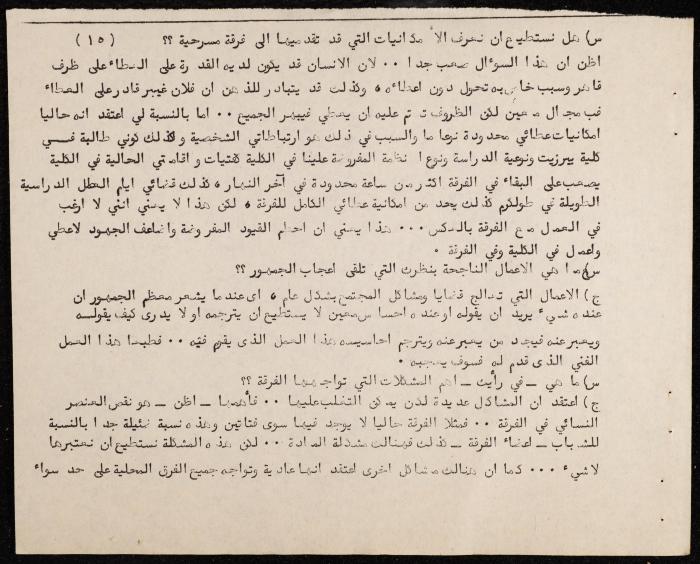 س) هل نستطيع ان نعرف الا مكانيات التي قد تقدمينها الى فرقة مسرحية ؟؟ (١٥)
اظن ان هذا السؤال صعب جدا ٠٠ لان الانسان قد يكون لديه القدرة على العطاء على ظرف
قاهر وسبب خاص به تحول دون اعطاءه ، وكذلك قد يتبادر للذهن ان فلان غير قادر على العطاء
في مجال معين لكن الظروف تحتم عليه ان يعطي فيبهر الجميع ٠٠ اما بالنسبة لي اعتقد انه حاليا
امكانيات عطائي محدودة نوعا ما والسبب في ذلك هو ارتباطاتي الشخصية وكذلك كوني طالبة فـــي
كلية بيرزيت ونوعية الدراسة ونوع انظمة المفروضة علينا في الكلية كفتيات واقامتي الحالية في الكلية
يصعب على البقاء في الفرقة اكثر من ساعة محدودة في آخر النهار ، كذلك قضائي ايام العطل الدراسية
الطويلة في طولكرم كذلك يحد من امكانية عطائي الكامل للفرقة ، لكن هذا لا يعني انني لا ارغب
في العمل مع الفرقة بالعكس ٠٠٠ هذا يعني ان احطم القيود المفروضة واضاعف الجهود لاعطي
واعمل في الكلية وفي الفرقة ٠
س) ما هي الاعمال الناجحة بنظرك التي تلقى اعجاب الجمهور ؟؟
ج) الاعمال التي تعالج قضايا ومشاكل المجتمع بشكل عام ، اى عندما يشعر معظم الجمهور ان
عنده شيء يريد ان يقوله او عنده احساس معين لا يستطيع ان يترجمه او لا يدرى كيف يقولـــه
ويعبر عنه فيجد من يعبر عنه ويترجم احاسيسه هذا العمل الذى يقوم فيه ٠٠ فطبعا هذا العمل
الفني الذى قدم له فسوف يعجبه ٠
س) ما هي ـ في رأيك ـ اهم المشكلات التي تواجهها الفرقة ؟؟
ج) اعتقد ان المشاكل عديدة لكن يمكن التغلب عليها ٠٠ فأهمها ـ اظن ـ هو نقص العنصر
النسائي في الفرقة ٠٠ فمثلا الفرقة حاليا لا يوجد فيها سوى فتاتين وهذه نسبة ضئيلة جدا بالنسبة
للشباب ـ اعضاء الفرقة ـ كذلك فهنالك مشكلة المادة ٠٠ لكن هذه المشكلة نستطيع ان نعتبرها
لا شيء ٠٠٠ كما ان هنالك مشاكل اخرى اعتقد انها عادية وتواجه جميع الفرق المحلية على حد سواء